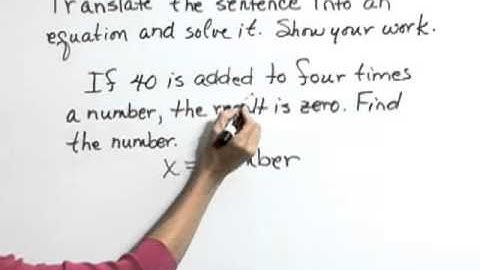 Translate the sentence into an
equation and solve it. Show your work.
If 40 is added to four times
a number, the result is zero. Find
the number.
x =